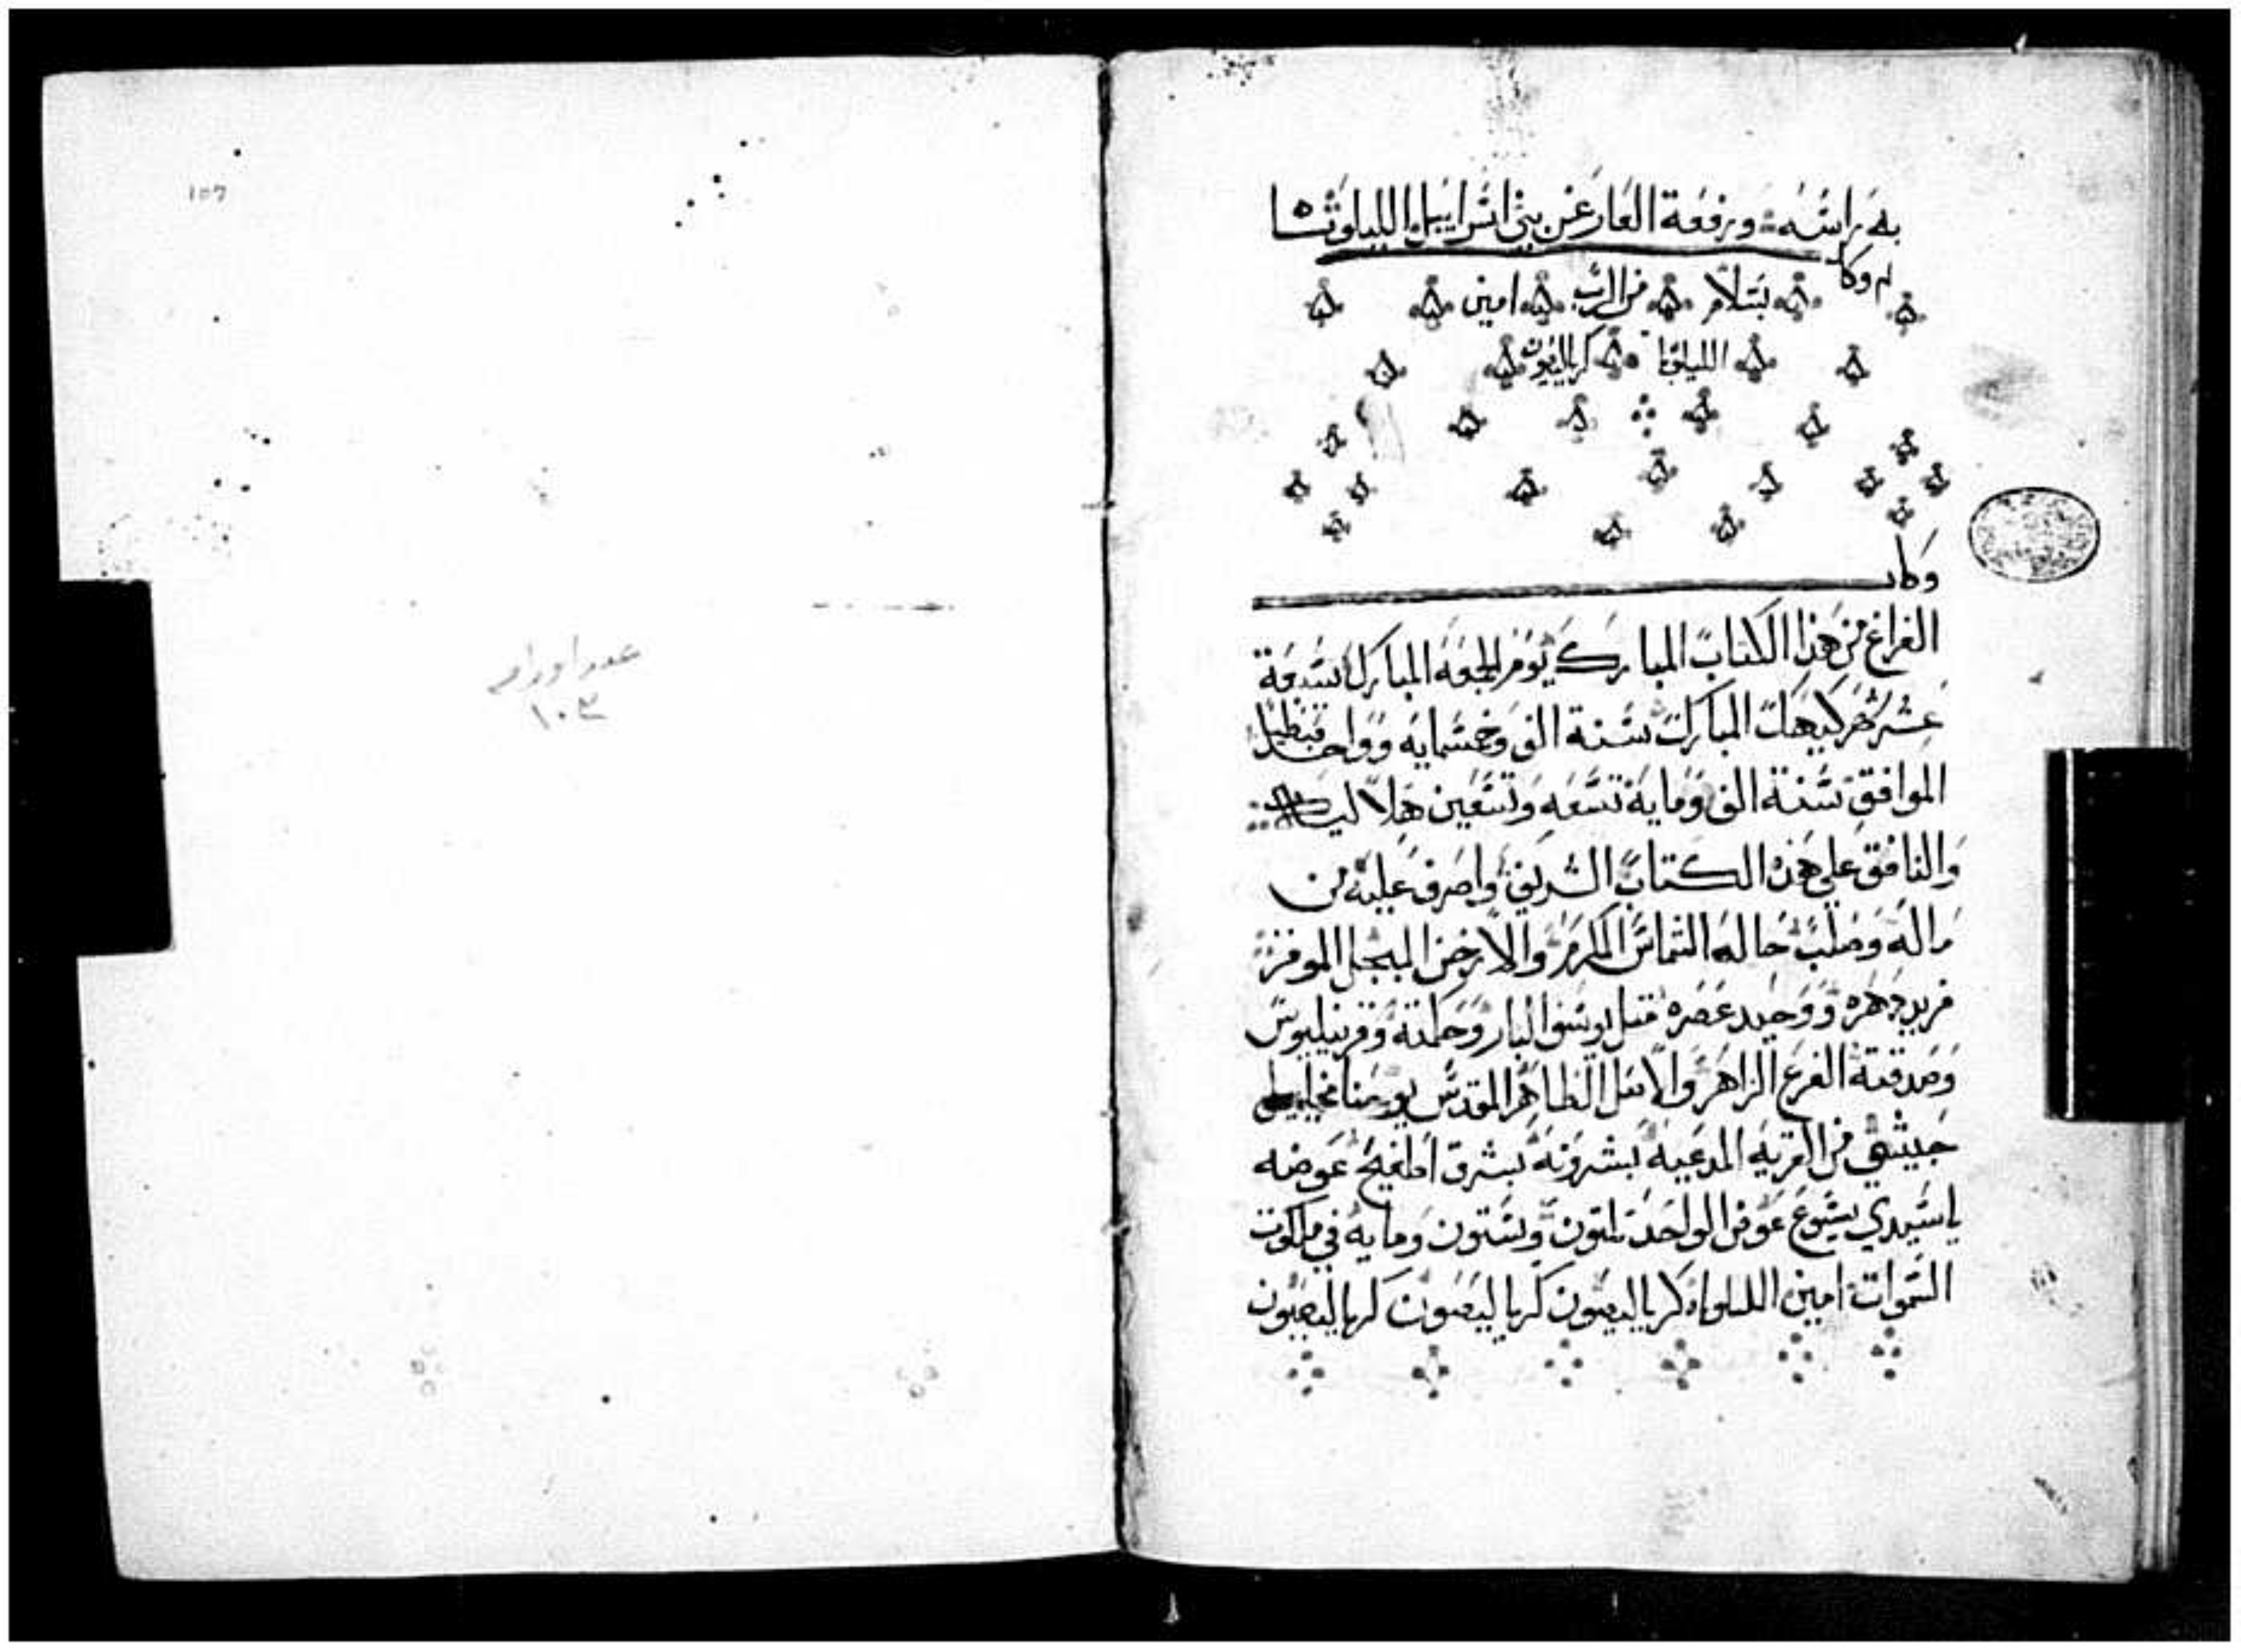 به راسه ورفعة العار عن بني اسراييل الليلويا
كمل وكا
بسلام من الرب امين
الليلويا كرياليصون
وكان
الفراغ من هذا الكتاب المبارك يوم الجمعه المبارك سبعة
عشر شهر كيهك المبارك سنة الف وخمسمايه وواحد قبطيا
الموافق سنة الف ومايه تسعه وتسعين هلاليه
والنافق علي هذه الكتاب الشريف واصرف عليه من
ماله وصلب حاله الشماس المكرم والارخن المبجل الموقر
فريد دهره ووحيد عصره مثل يوسف البار وحكمته وقرنيليوس
وصدقته الفرع الزاهر والاصل الطاهر المقدس يوحنا
من القريه المدعيه بشرونه بشرق اطفيح عوضه
ياسيدي يسوع عوض الواحد تلتون وستون ومايه في ملكوت
السموات امين الليلوياه كرياليصون كرياليصون كرياليصون
107
عدد اوراقه
١٠٣